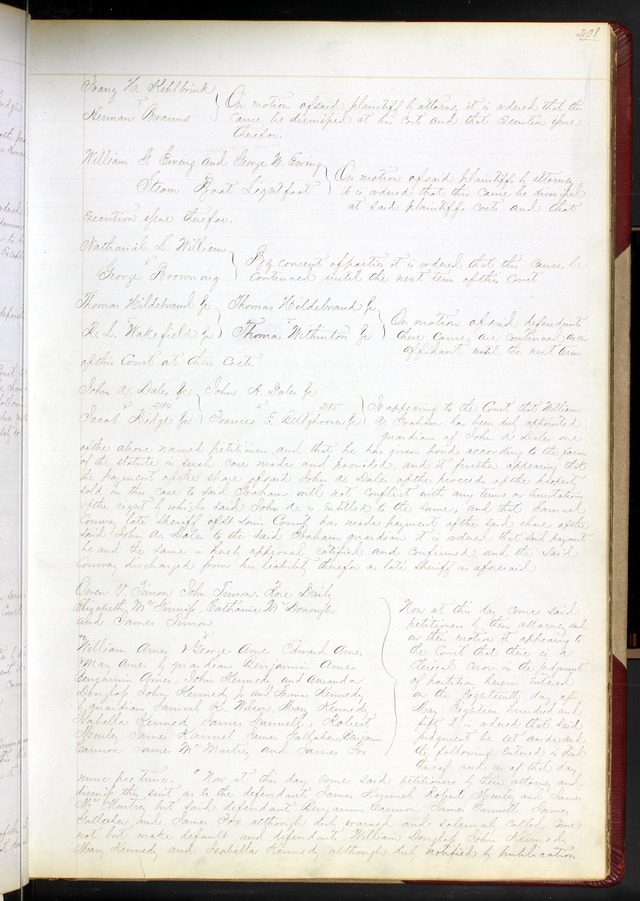 208
Franz H. Kehlbrink
vs
Herman Brauns } On motion of said plaintiff by attorney it is ordered that this
cause be dismissed at his cost and that Execution issue
therefor.
William G. Ewing and George W. Ewing
vs
Steam Boat Lightfoot } On motion of said plaintiffs by attorney
it is ordered that this cause be dismissed
at said plaintiffs costs and that
execution issue therefor.
Nathaniel L. William
vs
George Browning } By consent of parties it is ordered that this cause be
continued until the next term of this Court
Thomas Hildebrand &c Thomas Hildebrand &c
vs vs
D. L. Wakefield &c } Thomas Withinton &c } On motion of said defendants
these causes are continued on
affidavit until the next term
of this Court at their costs.
John A. Dales &c John A. Dales &c
vs vs
Jacob Ridge &c } Frances E. &c } It appearing to the Court that William
A. Graham has been duly appointed
guardian of John A. Dales one
of the above named petitioners and that he has given bond according to the form
of the statute in such case made and provided, and it further appearing that
the payment of the share of said John A. Dales of the proceeds of the property
sold in this case to said Graham will not conflict with any terms or limitation
of the right by which said John A. is entitled to the same, and that Samuel
Conway late Sheriff of St Louis County has made payment of the said share of the
said John A. Dales to the said Graham guardian it is ordered that said payment
be and the same is hereby approved ratified and confirmed and the said
Conway discharged from his liability therefor as late Sheriff as aforesaid
Owen V. Timon John Timon, Rose Daily
Elizabeth McGinnis, Catharine McDonough
and James Timon
vs
William Ames & George Ames Edward Ames
Mary Ames by guardian Benjamin Ames
Benjamin Ames, John Kennedy and Amanda
Douglass John Kennedy Jr and Kennedy
by guardian Samuel R. Wilson, Mary Kennedy
Isabella Kennedy James Gunnell, Robert
James James Gallaher, Benjamin
Cannon James McMurtrey and James Fox
Now at this day come said
petitioners by their attorney and
on their motion it appearing to
the Court that there is a
clerical error in the judgment
of partition herein entered
on the Eighteenth day of
May Eighteen hundred and
fifty it is ordered that said
judgment be set aside and
the following Entered in stead
thereof and as of that day
nunc pro tunc. "Now at this day come said petitioners by their attorney and
dismiss this suit as to the defendants James Robert and James
McMurtrey but said defendant Benjamin Cannon James Gunnell James
Gallaher and James Fox although duly warned and solemnly called come
not but make default and defendants William Douglass John Kennedy
Mary Kennedy and Isabella Kennedy although duly notified by publication